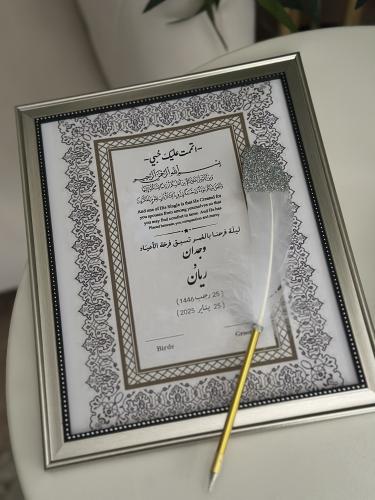 -اتممت عليك حُبي-
بسم الله الرحمن الرحيم
And one of His Singls is that He Created for
you spouses from among yourselves so that
you may find comfort in tener. And He has
Placed between you compassion and mercy
ليلة فرحنا بالعمر تسبق فرحة الأعياد
وجدان
و
ريان
(25 رجب 1446)
(25 يناير 2025)
Birde